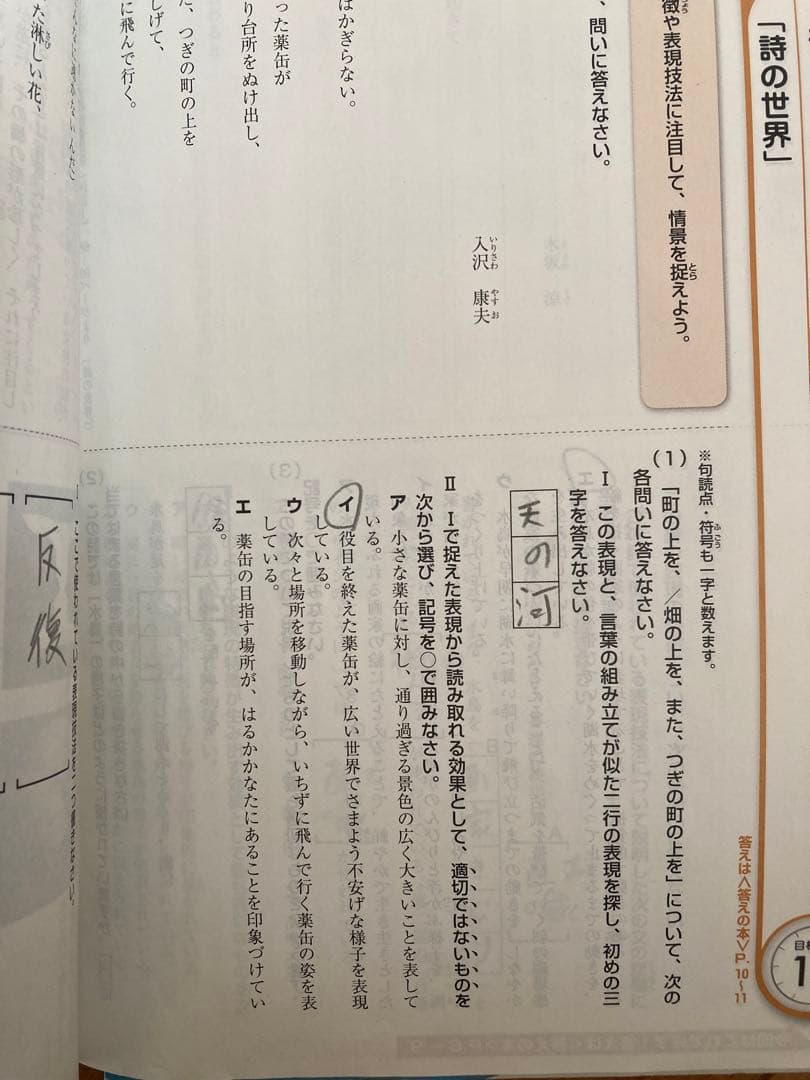 「詩の世界」
徴や表現技法に注目して、情景を捉えよう。
、問いに答えなさい。
入沢　康夫
はかぎらない。
った薬缶が
り台所をぬけ出し、
しげて、
た、つぎの町の上を
に飛んで行く。
た淋しい花、
※句読点・符号も一字と数えます。
答えは〈答えの本〉P.10〜11
(1)　「町の上を、／畑の上を、また、つぎの町の上を」について、次の
各問いに答えなさい。
Ⅰ　この表現と、言葉の組み立てが似た二行の表現を探し、初めの三
字を答えなさい。
天の河
Ⅱ　Ⅰで捉えた表現から読み取れる効果として、適切ではないものを
次から選び、記号を○で囲みなさい。
ア　小さな薬缶に対し、通り過ぎる景色の広く大きいことを表して
いる。
イ　役目を終えた薬缶が、広い世界でさまよう不安げな様子を表現
している。
ウ　次々と場所を移動しながら、いちずに飛んで行く薬缶の姿を表
している。
エ　薬缶の目指す場所が、はるかかなたにあることを印象づけてい
る。
反復